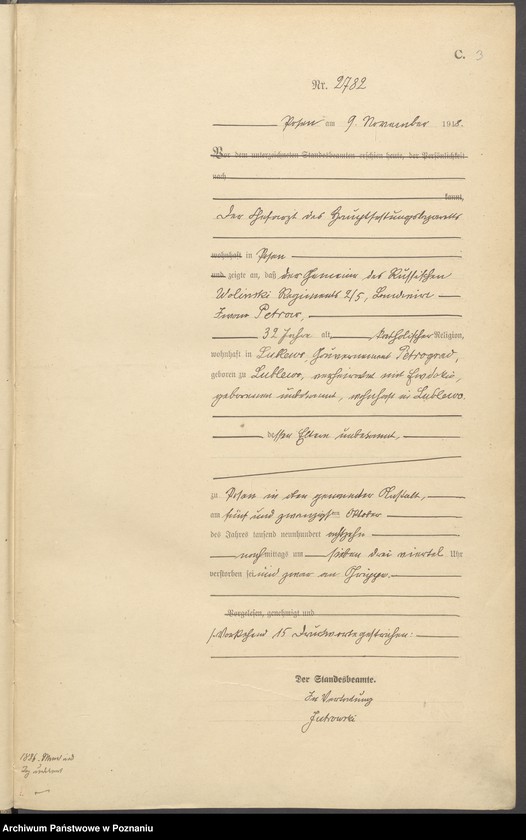 C. 3
Nr. 2782
Posen am 9. November 1918.
Vor dem unterzeichneten Standesbeamten erschien heute, der Persönlichkeit
nach
kannt,
Der Chefarzt des Hauptfestungslazaretts
wohnhaft in Posen
und zeigte an, daß der Gemeine des Russischen
Wolinski Regiments 2/5,
Iwan Petrow,
32 Jahre alt, katholischer Religion,
wohnhaft in Gouvernement Petrograd,
geboren zu Lublewo, verheiratet mit
geborenen unbekannt, wohnhaft in Lublewo.
dessen Eltern unbekannt,
zu Posen in der genannten Anstalt,
am fünf und zwanzigsten Oktober
des Jahres tausend neunhundert achtzehn
nachmittags um sieben drei viertel Uhr
verstorben sei und zwar an Grippe.
Vorgelesen, genehmigt und
Vorstehend 15 Druckworte gestrichen.
Der Standesbeamte.
In Vertretung
Jutrowski
Archiwum Państwowe w Poznaniu